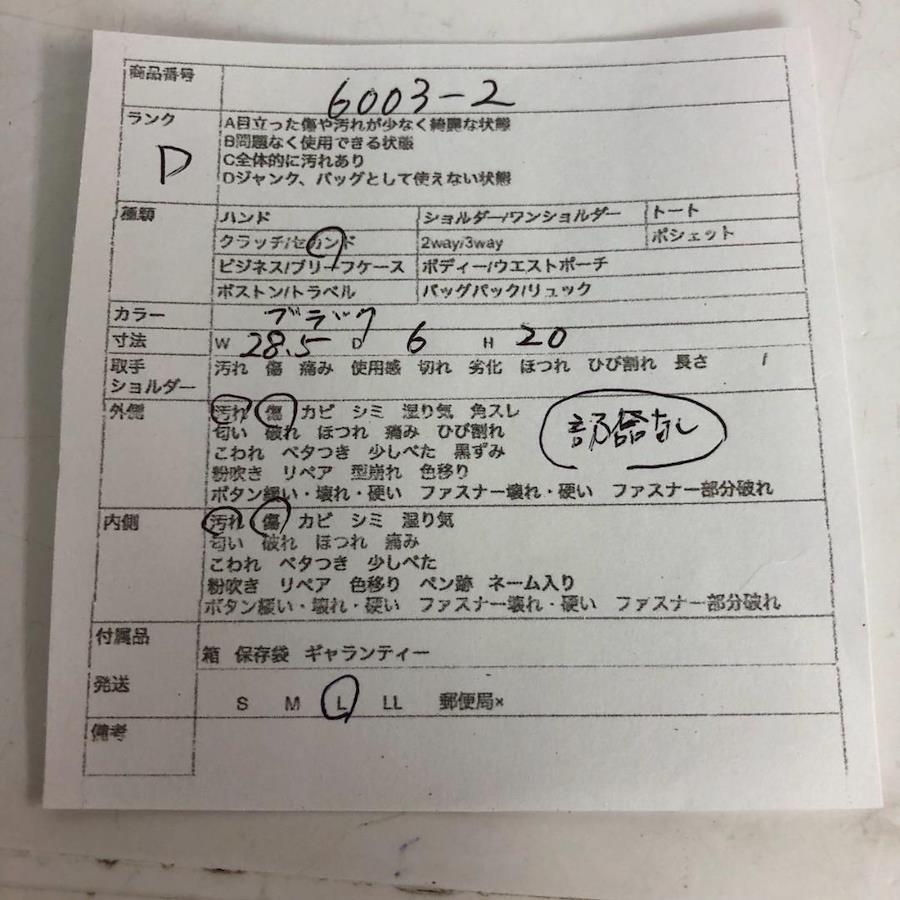 商品番号 6003-2
ランク D
A目立った傷や汚れが少なく綺麗な状態
B問題なく使用できる状態
C全体的に汚れあり
Dジャンク、バッグとして使えない状態
種類 ハンド ショルダー/ワンショルダー トート
クラッチ/セカンド 2way/3way ポシェット
ビジネス/ブリーフケース ボディー/ウエストポーチ
ボストン/トラベル バッグパック/リュック
カラー ブラック
寸法 W 28.5 D 6 H 20
取手 汚れ 傷 痛み 使用感 切れ 劣化 ほつれ ひび割れ 長さ /
ショルダー
外側 汚れ 傷 カビ シミ 湿り気 角スレ
匂い 破れ ほつれ 痛み ひび割れ
部品なし
こわれ ベタつき 少しべた 黒ずみ
粉吹き リペア 型崩れ 色移り
ボタン緩い・壊れ・硬い ファスナー壊れ・硬い ファスナー部分破れ
内側 汚れ 傷 カビ シミ 湿り気
匂い 破れ ほつれ 痛み
こわれ ベタつき 少しべた
粉吹き リペア 色移り ペン跡 ネーム入り
ボタン緩い・壊れ・硬い ファスナー壊れ・硬い ファスナー部分破れ
付属品 箱 保存袋 ギャランティー
発送 S M L LL 郵便局×
備考